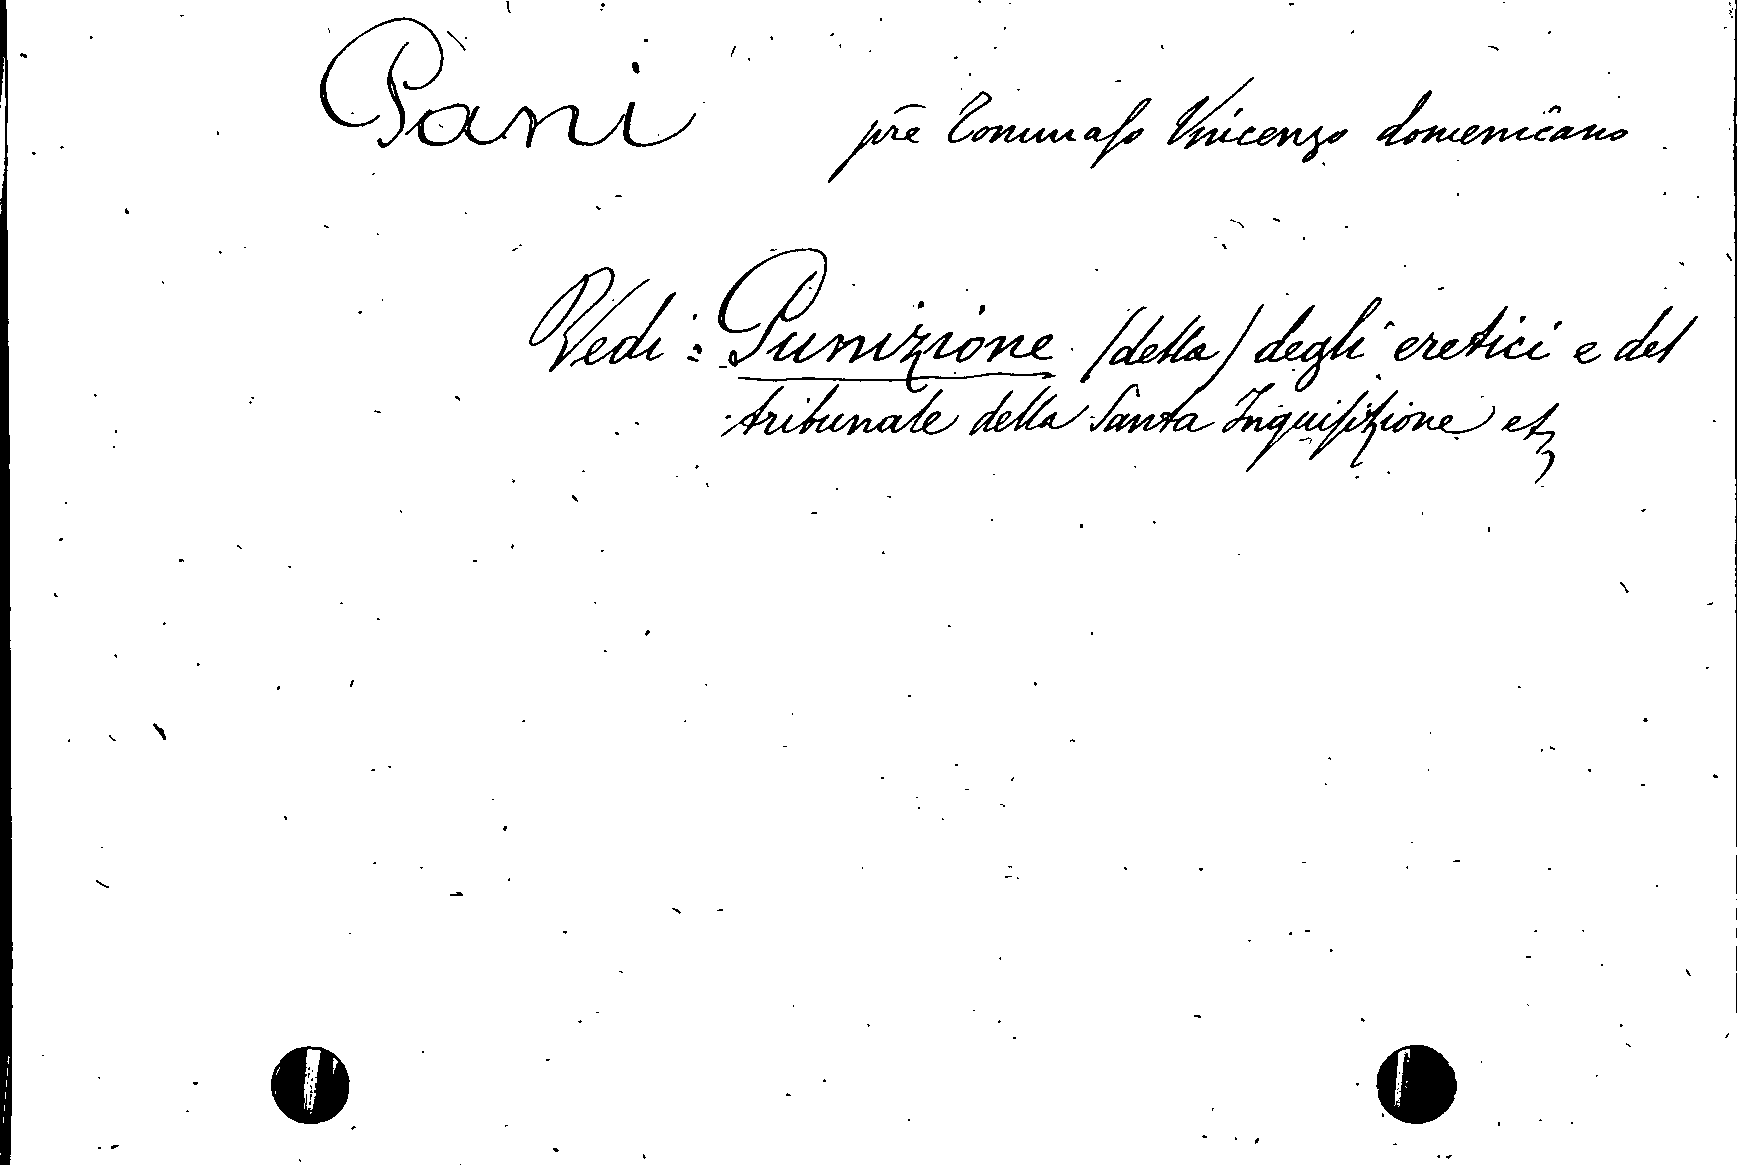 Pani p̄re Tommaso Vincenzo domenicano
Vedi: Punizione (della) degli eretici e del
tribunale della Santa Inquisizione etz